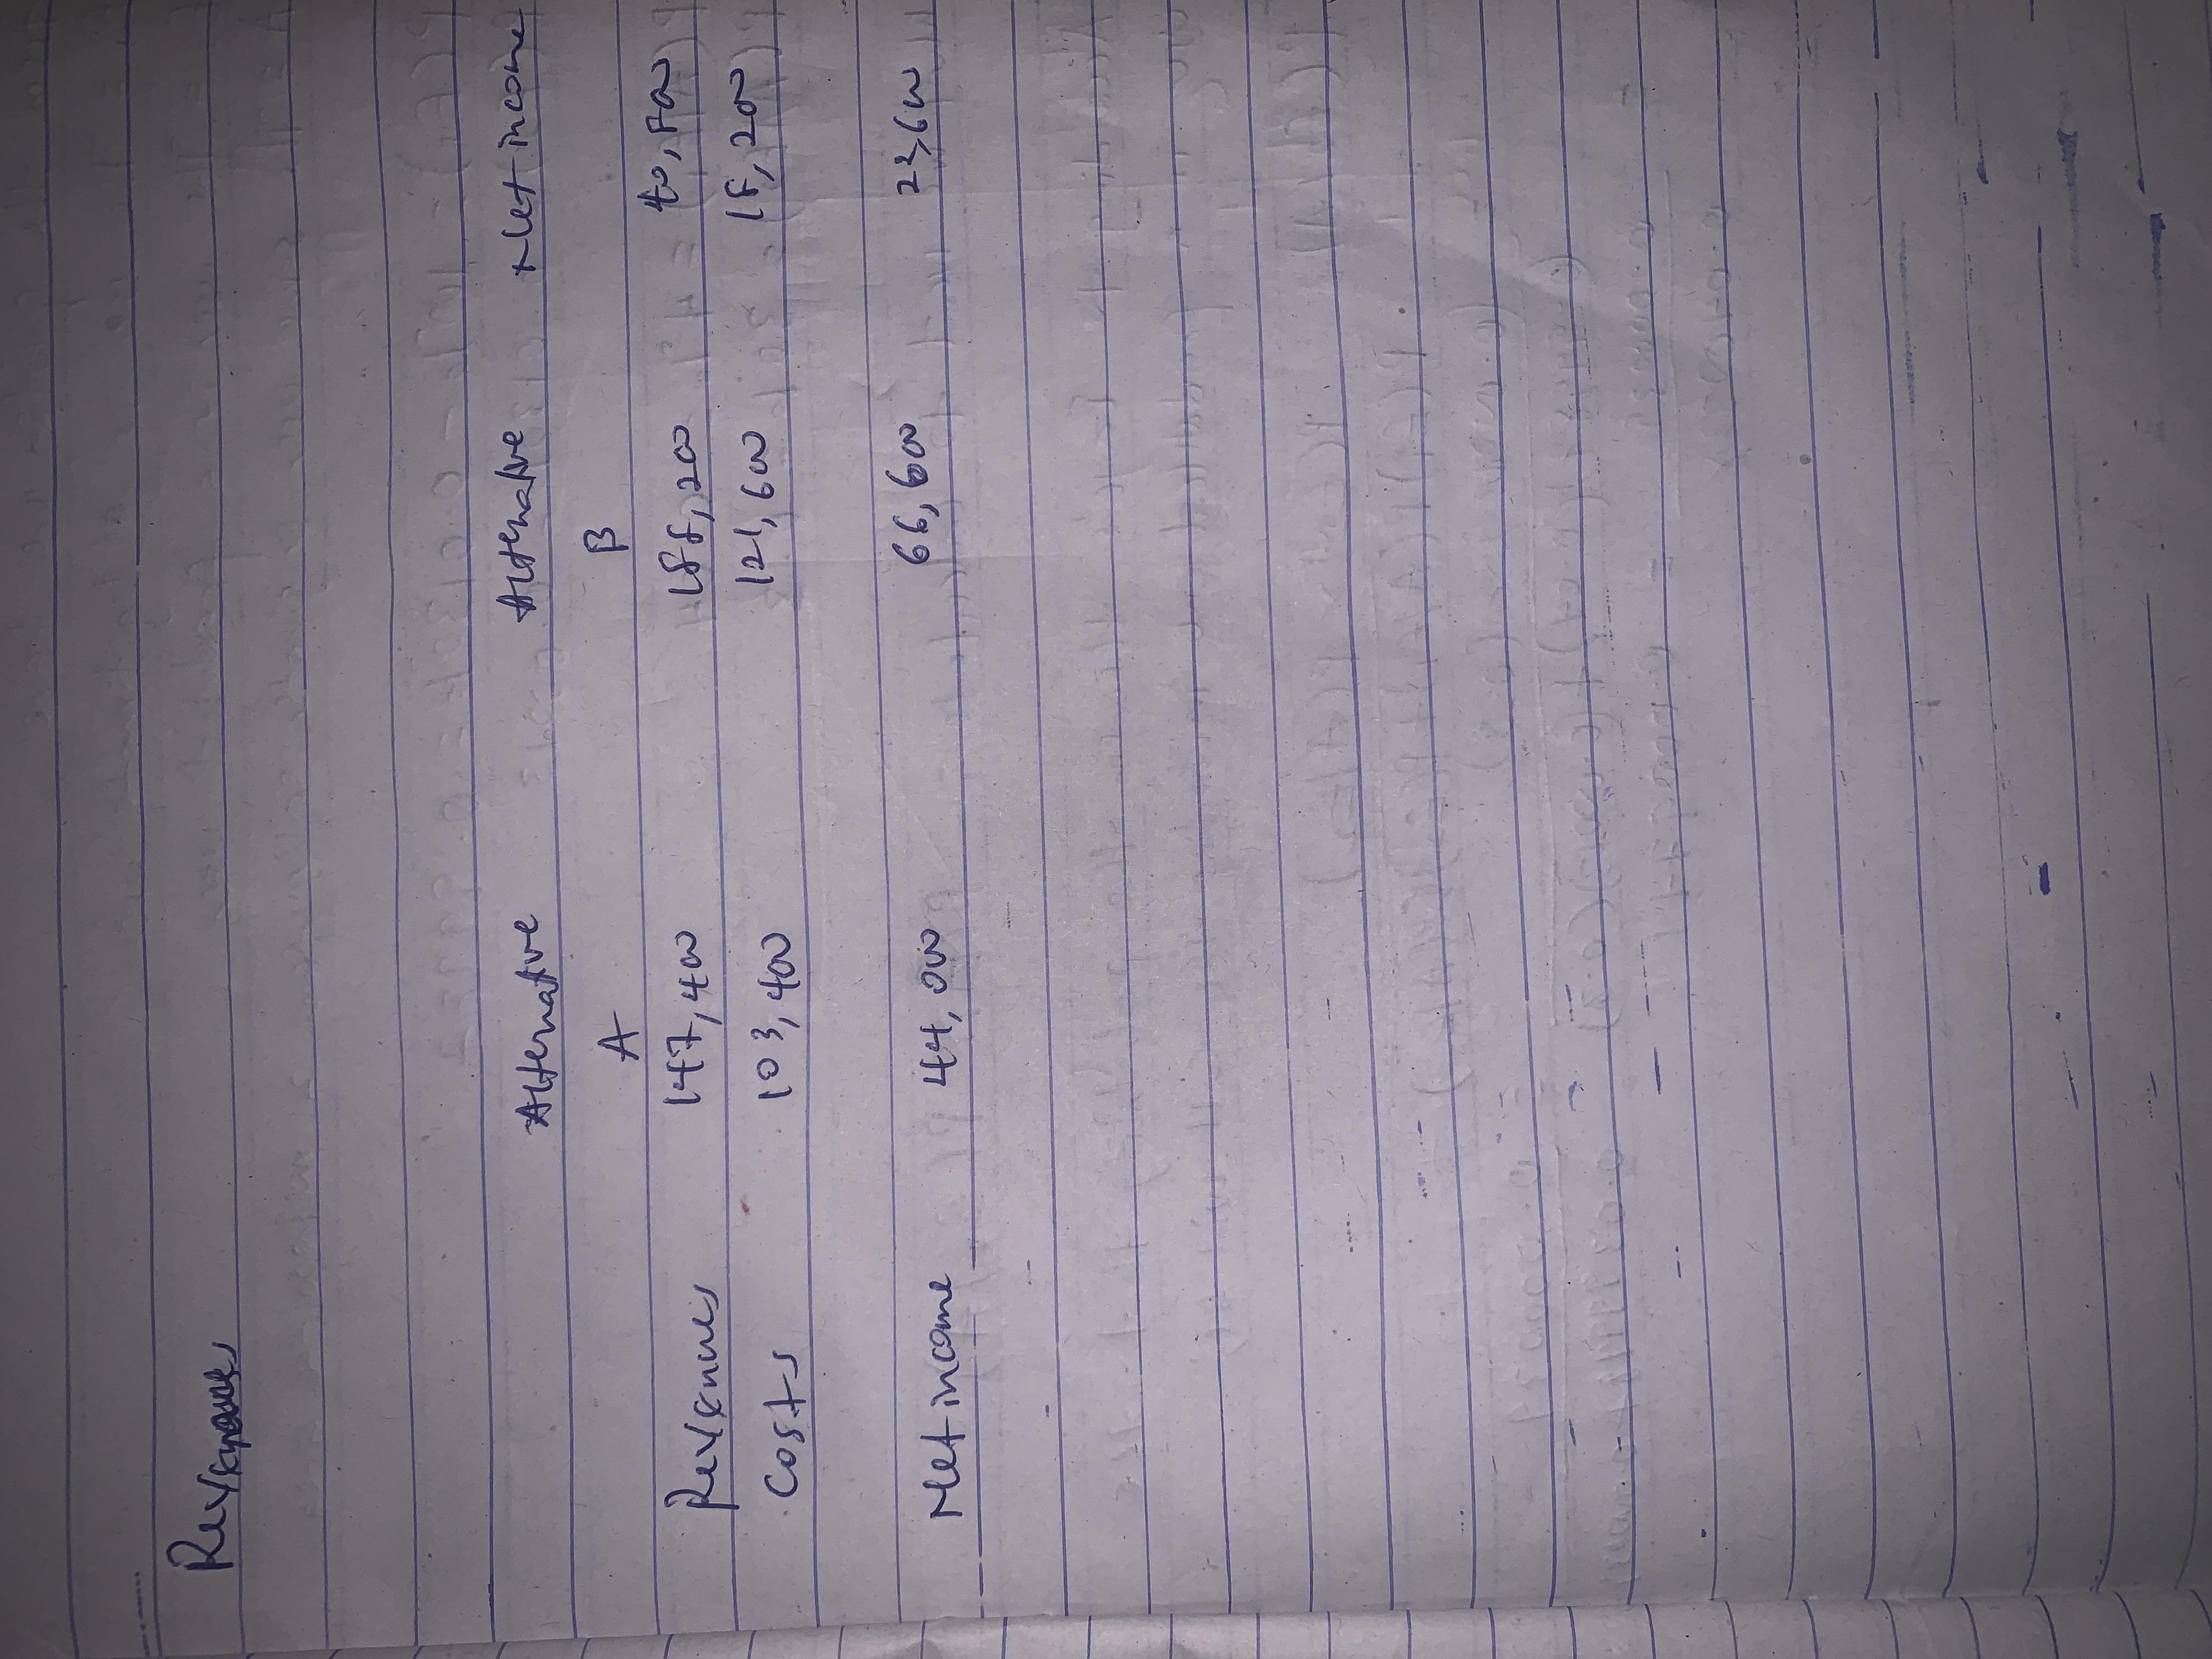 Revenues
Alternative Alternative Net income
A B
Revenues 147,400 188,200 40,800
Costs 103,400 121,600 18,200
Net income 44,000 66,600 22,600